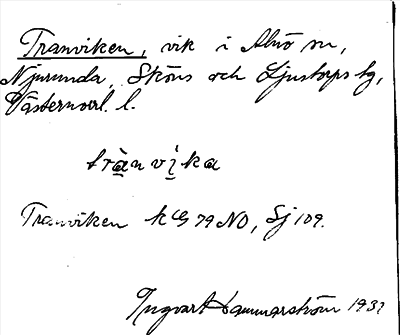 Tranviken, vik i Alnö sn,
Njurunda, Sköns och Ljustorps tg,
Västernorrl. l.
trànvị̀ka
Tranviken kG 79 NO, Sj 109.
Ingvart Hammarström 1937